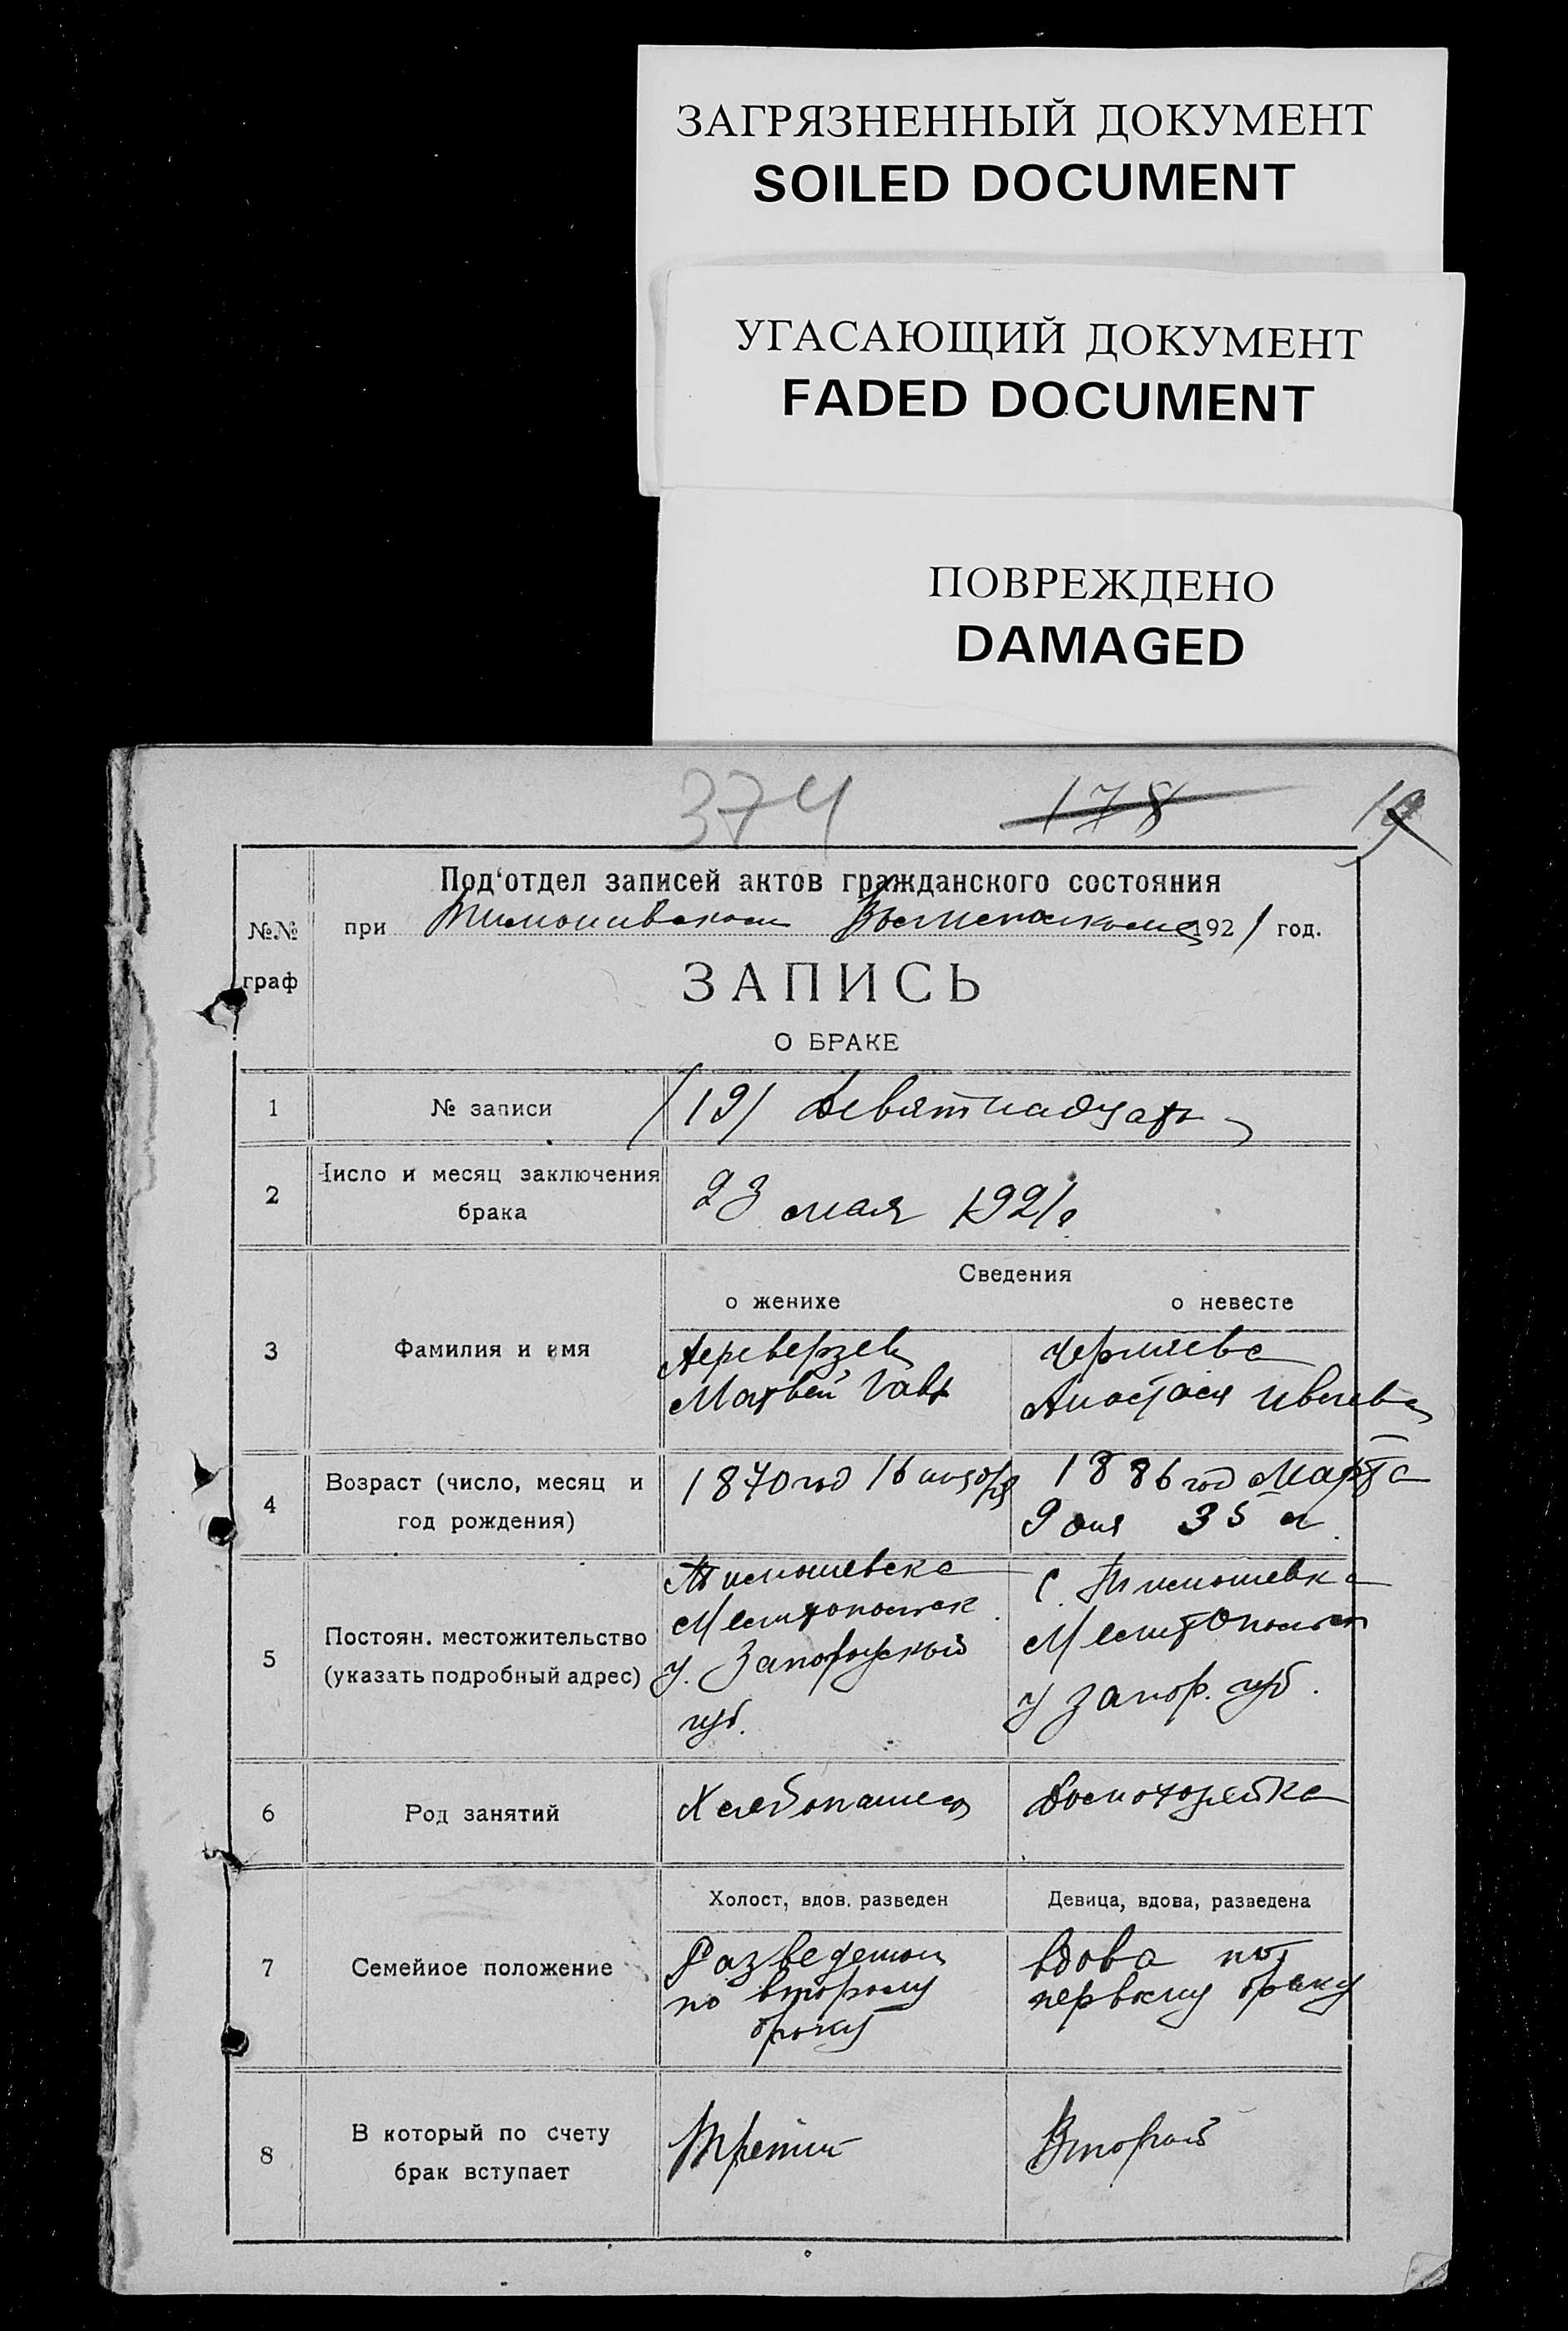 ЗАГРЯЗНЕННЫЙ ДОКУМЕНТ
SOILED DOCUMENT
УГАСАЮЩИЙ ДОКУМЕНТ
FADED DOCUMENT
ПОВРЕЖДЕНО
DAMAGED
374 178 19
Под'отдел записей актов гражданского состояния
№№ при 1921 год.
граф
ЗАПИСЬ
О БРАКЕ
1 № записи /19/ Девятнадцать
2 Число и месяц заключения
брака
23 мая 1921
Сведения
о женихе о невесте
3 Фамилия и имя
Переверзев
Матвей Гавр
Черняева
Анастасия
4 Возраст (число, месяц и
год рождения)
1870 год 16 ноября
1886 год Марта
9 дня 35 л
5 Постоян. местожительство
(указать подробный адрес)
Тимошевка
Мелитопольск
у. Запорожской
губ.
с. Тимошевка
Мелитопольск
у Запор. губ.
6 Род занятий Хлебопашец Домохозяйка
Холост, вдов, разведен Девица, вдова, разведена
7 Семейное положение
по второму
браку
вдова по
первому браку
8 В который по счету
брак вступает
Третий Второй